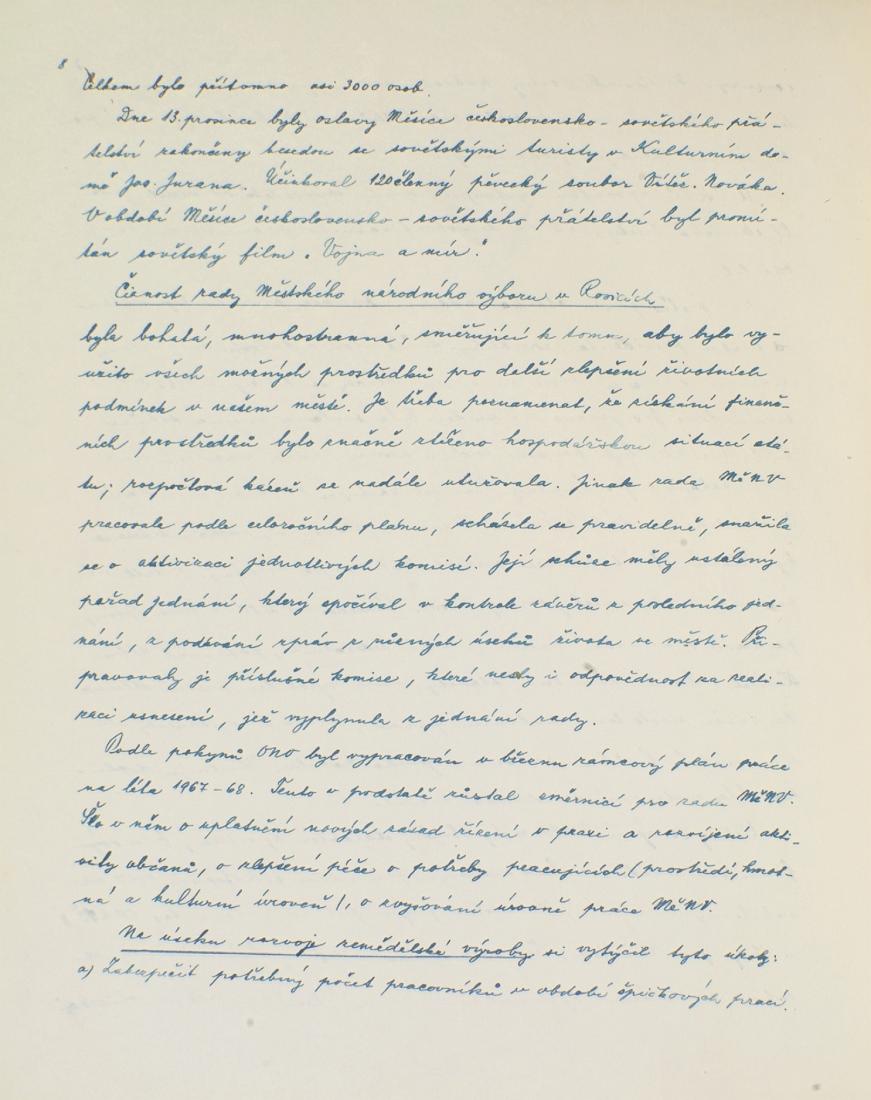 8
Celkem bylo přítomno asi 3000 osob.
Dne 13. prosince byly oslavy Měsíce československo - sovětského přá-
telství zakončeny besedou se sovětskými turisty v Kulturním do-
mě Jos. Jurana. Účinkoval 120členný pěvecký soubor Vítěz. Nováka.
V období Měsíce československo - sovětského přátelství byl promí-
tán sovětský film „Vojna a mír."
Činnost rady Městského národního výboru v Rosicích
byla bohatá, mnohostranná, směřující k tomu, aby bylo vy-
užito všech možných prostředků pro další zlepšení životních
podmínek v našem městě. Je třeba poznamenat, že získání finanč-
ních prostředků bylo značně ztíženo hospodářskou situací stá-
tu; rozpočtová kázeň se nadále utužovala. Jinak rada MěNV
pracovala podle celoročního plánu, scházela se pravidelně, snažila
se o aktivizaci jednotlivých komisí. Její schůze měly ustálený
pořad jednání, který spočíval v kontrole závěrů z posledního jed-
nání, z podávání zpráv z různých úseků života ve městě. Při-
pravovaly je příslušné komise, které nesly i odpovědnost za reali-
zaci usnesení, jež vyplynula z jednání rady.
Podle pokynů ONV byl vypracován v březnu rámcový plán práce
na léta 1967-68. Tento v podstatě zůstal směrnicí pro radu MěNV.
Šlo v něm o uplatnění nových zásad řízení v praxi a rozvíjení akti-
vity občanů, o zlepšení péče o potřeby pracujících (prostředí, hmot-
ná a kulturní úroveň), o zvyšování úrovně práce MěNV.
Na úseku rozvoje zemědělské výroby si vytýčil tyto úkoly:
a) Zabezpečit potřebný počet pracovníků v období špičkových prací.